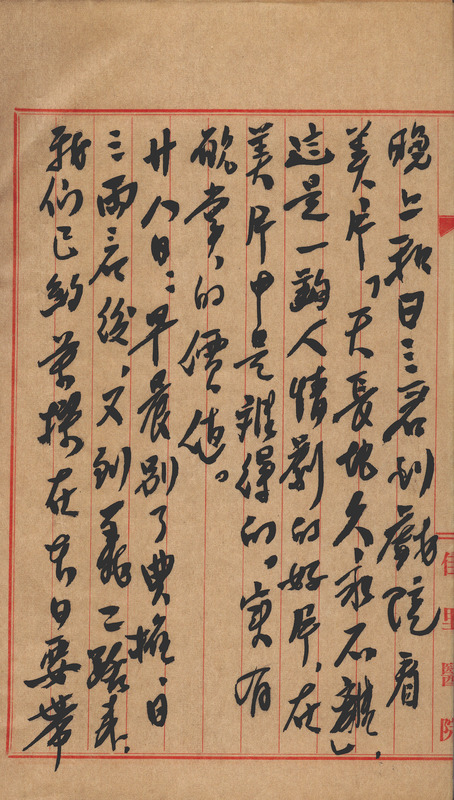 佳里醫院
晚上和日三君到戲院看
美片，「天長地久永不離」，
這是一齣人情劇的好片，在
美片中是難得的。實有
欣賞的價值。
廿八日：早晨別了典雄、日
三兩君後，又到二路來，
我們已約葉在日要帶